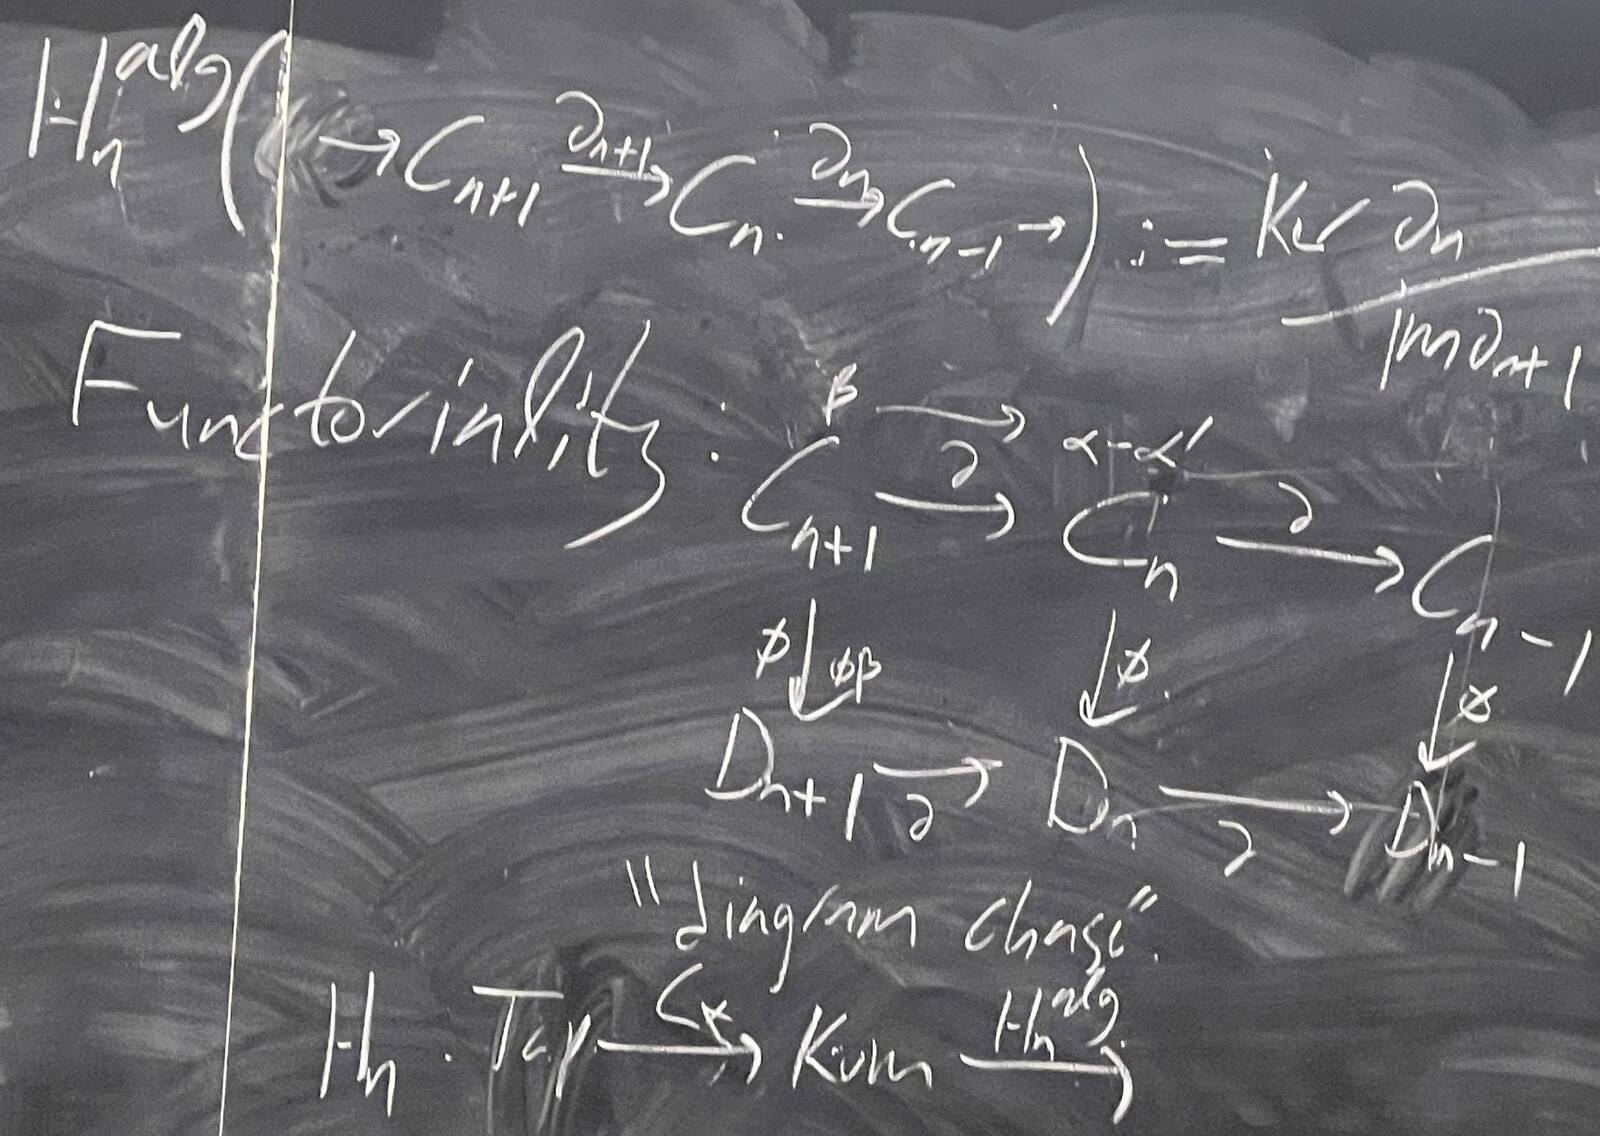 H_n^{alg}( → C_{n+1} \xrightarrow{∂_{n+1}} C_n \xrightarrow{∂_n} C_{n-1} → ) := Ker ∂_n / Im ∂_{n+1}
Functoriality:
β → α-α'
C_{n+1} \xrightarrow{∂} C_n \xrightarrow{∂} C_{n-1}
φ ↓ φβ ↓ φ ↓ φ
D_{n+1} \xrightarrow{∂} D_n \xrightarrow{∂} D_{n-1}
"diagram chase".
H_n : Top \xrightarrow{C_*} Kom \xrightarrow{H_n^{alg}}